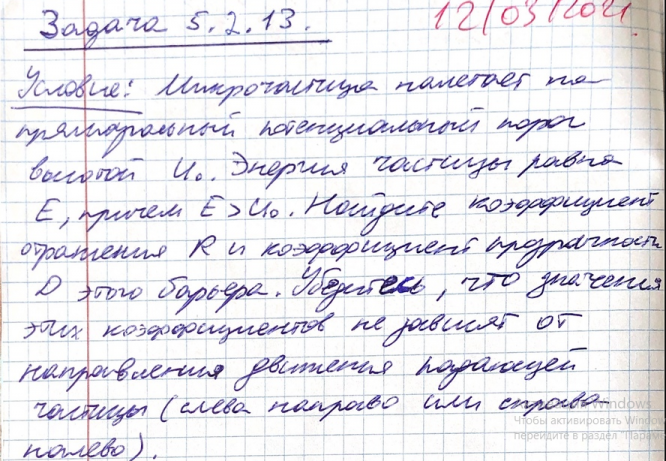 Задача 5.2.13.
12/03/2021.
Условие: Микрочастица налетает на
прямоугольный потенциальный порог
высотой U₀. Энергия частицы равна
E, причем E>U₀. Найдите коэффициент
отражения R и коэффициент прозрачности
D этого барьера. Убедитесь, что значения
этих коэффициентов не зависят от
направления движения падающей
частицы (слева направо или справа
налево).
Windows
Чтобы активировать Window
перейдите в раздел "Парам